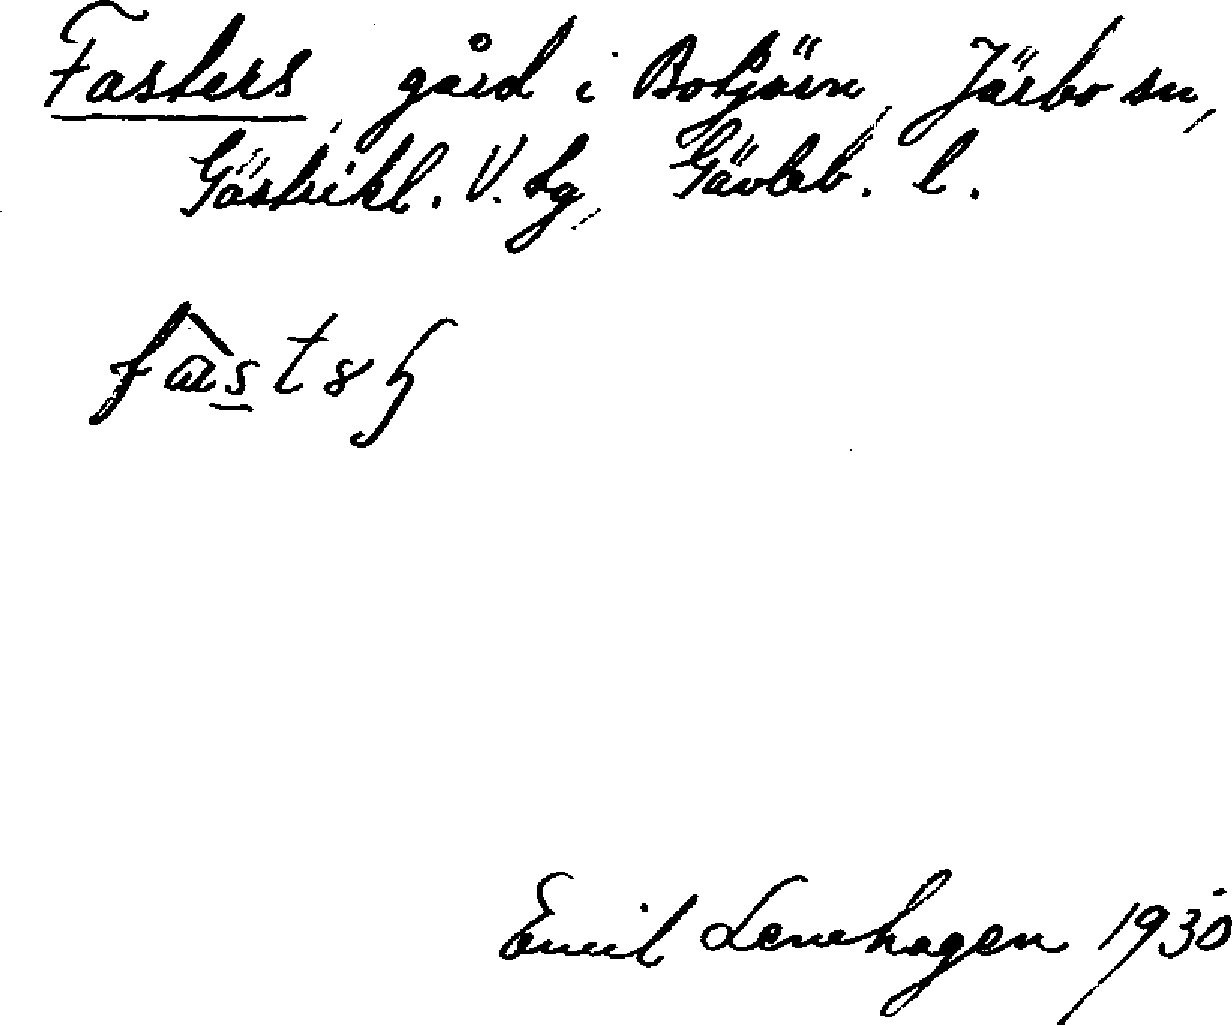 Fasters, gård i Botjärn, Järbo sn,
Gästrikl. V. tg, Gävleb. l.
Emil Lenehagen 1930